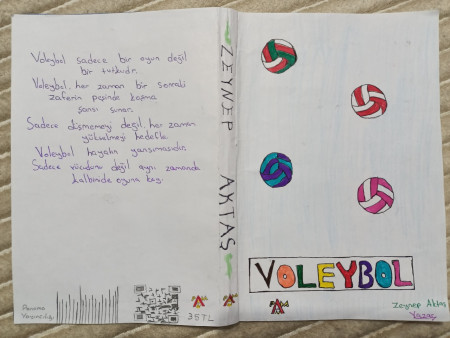 Voleybol sadece bir oyun değil
bir tutkudur.
Voleybol, her zaman bir sonraki
zaferin peşinde koşma
şansı sunar.
Sadece düşmemeyi değil, her zaman
yükselmeyi hedefle.
Voleybol hayatın yansımasıdır.
Sadece vücudunu değil aynı zamanda
kalbinide oyuna koy.
35TL
ZEYNEP AKTAŞ
VOLEYBOL
Zeynep Aktaş
Yazaş